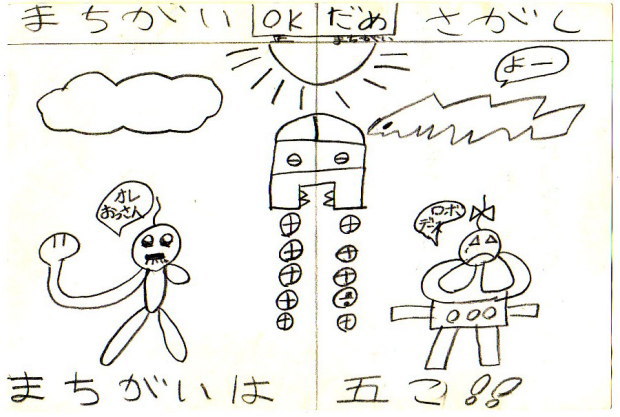 まちがい OK だめ さがし
まちがい
よー
オレ
おっさん
ロボ
デース
まちがいは 五こ!!